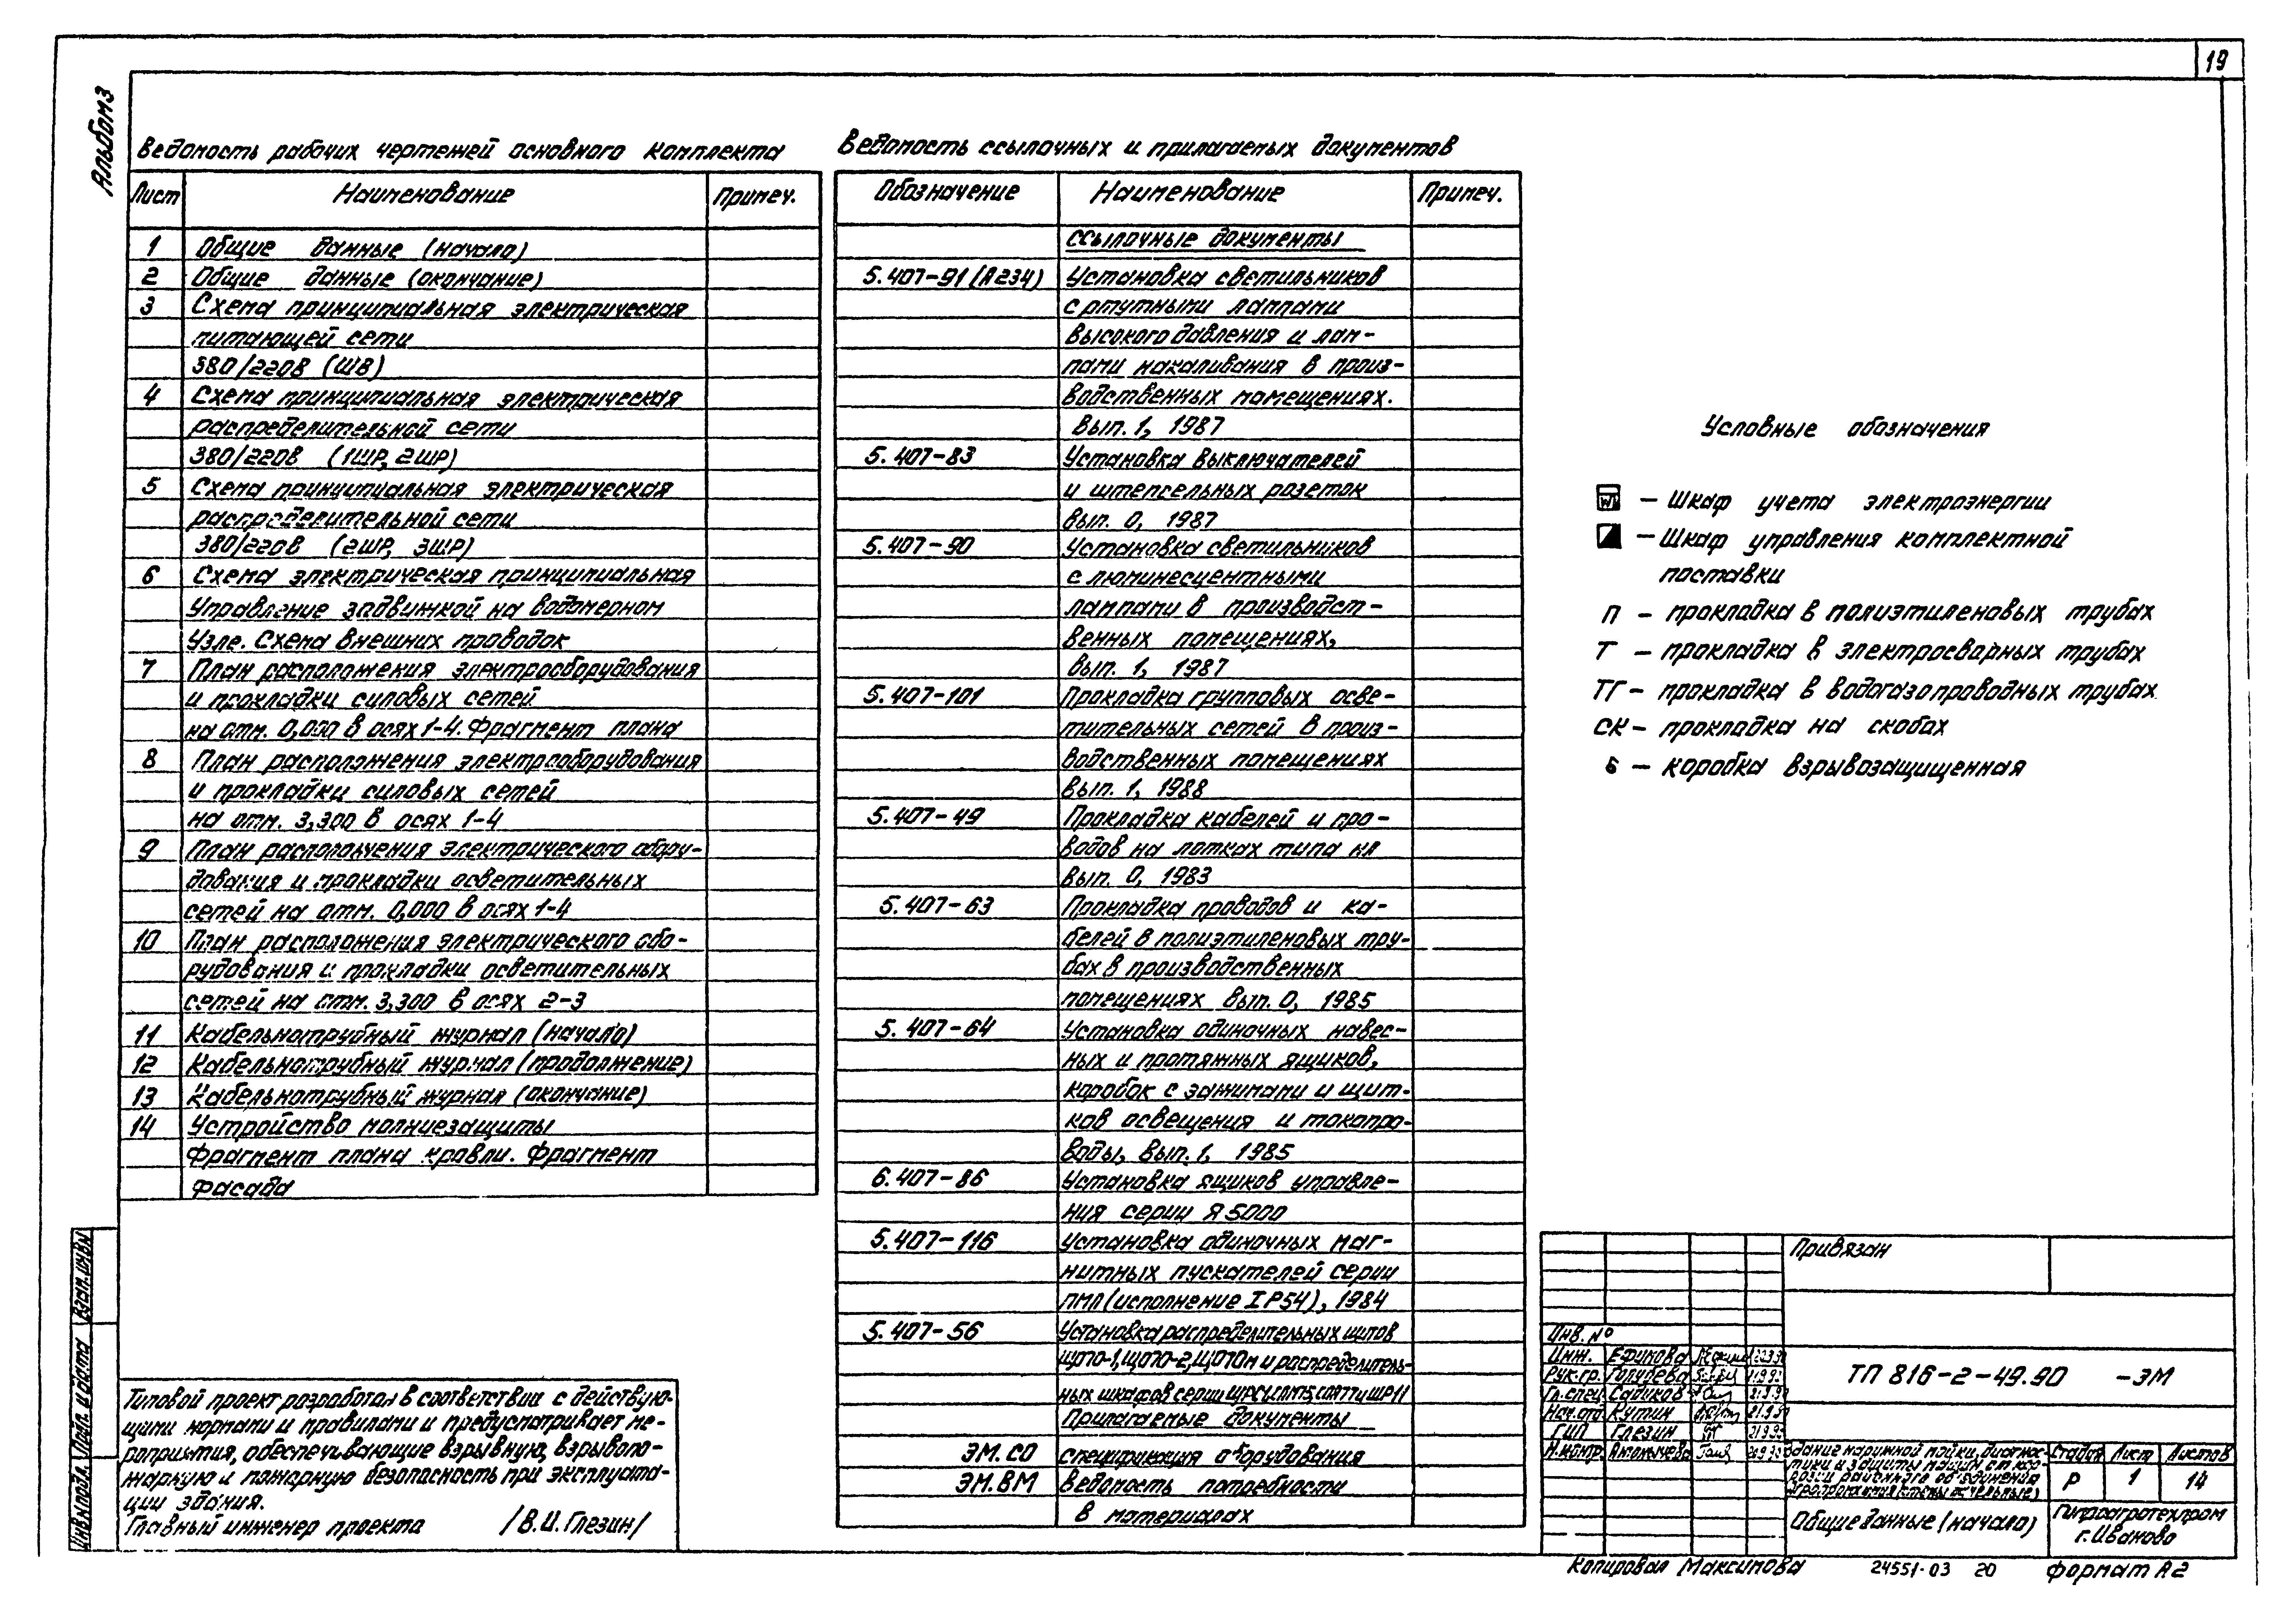 19
Альбом 3
Ведомость рабочих чертежей основного комплекта
Лист Наименование Примеч.
1 Общие данные (начало)
2 Общие данные (окончание)
3 Схема принципиальная электрическая
питающей сети
380/220В (ШВ)
4 Схема принципиальная электрическая
распределительной сети
380/220В (1ШР, 2ШР)
5 Схема принципиальная электрическая
распределительной сети
380/220В (2ШР, 3ШР)
6 Схема электрическая принципиальная
Управление задвижкой на водомерном
Узле. Схема внешних проводок
7 План расположения электрооборудования
и прокладки силовых сетей
на отм. 0,000 в осях 1-4. Фрагмент плана
8 План расположения электрооборудования
и прокладки силовых сетей
на отм. 3,300 в осях 1-4
9 План расположения электрического обору-
дования и прокладки осветительных
сетей на отм. 0,000 в осях 1-4
10 План расположения электрического обо-
рудования и прокладки осветительных
сетей на отм. 3,300 в осях 2-3
11 Кабельнотрубный журнал (начало)
12 Кабельнотрубный журнал (продолжение)
13 Кабельнотрубный журнал (окончание)
14 Устройство молниезащиты
Фрагмент плана кровли. Фрагмент
фасада
Ведомость ссылочных и прилагаемых документов
Обозначение Наименование Примеч.
Ссылочные документы
5.407-91 (А234) Установка светильников
с ртутными лампами
высокого давления и лам-
пами накаливания в произ-
водственных помещениях.
Вып. 1, 1987
5.407-83 Установка выключателей
и штепсельных розеток
Вып. 0, 1987
5.407-90 Установка светильников
с люминесцентными
лампами в производст-
венных помещениях,
Вып. 1, 1987
5.407-101 Прокладка групповых осве-
тительных сетей в произ-
водственных помещениях
Вып. 1, 1988
5.407-49 Прокладка кабелей и про-
водов на лотках типа НЛ
Вып. 0, 1983
5.407-63 Прокладка проводов и ка-
белей в полиэтиленовых тру-
бах в производственных
помещениях Вып. 0, 1985
5.407-64 Установка одиночных навес-
ных и протяжных ящиков,
коробок с зажимами и щит-
ков освещения и токопро-
воды, Вып. 1, 1985
6.407-86 Установка ящиков управле-
ния серии Я5000
5.407-116 Установка одиночных маг-
нитных пускателей серии
ПМЛ (исполнение IP54), 1984
5.407-56 Установка распределительных щитов
ЩО70-1, ЩО70-2, ЩО70М и распределитель-
ных шкафов серии
Прилагаемые документы
ЭМ.СО Спецификация оборудования
ЭМ.ВМ Ведомость потребности
в материалах
Условные обозначения
Wh – Шкаф учета электроэнергии
– Шкаф управления комплектной
поставки
П – прокладка в полиэтиленовых трубах
Т – прокладка в электросварных трубах
ТГ – прокладка в водогазопроводных трубах
СК – прокладка на скобах
б – коробка взрывозащищенная
Инв.№подл. Подп. и дата Взам.инв№
Типовой проект разработан в соответствии с действую-
щими нормами и правилами и предусматривает ме-
роприятия, обеспечивающие взрывную, взрывопо-
жарную и пожарную безопасность при эксплуата-
ции здания.
Главный инженер проекта /В.И. Глезин/
Привязан
Инв. №
Инж. Ефимова
Рук.гр. Голубева
Гл.спец. Садиков
Нач.отд Кутин
ГИП Глезин
Н.контр.
ТП 816-2-49.90 -ЭМ
Здание наружной мойки, диагнос-
тики и защиты машин от кор-
розии районного объединения
Стадия Лист Листов
Р 1 14
Общие данные (начало)
Гипроагротехпром
г. Иваново
Копировал Максимова 24551-03 20 Формат А2